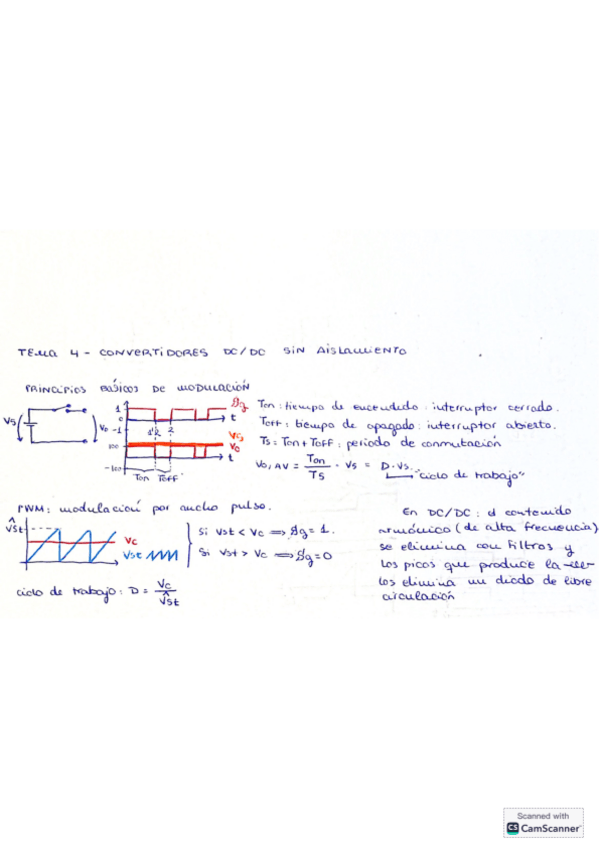 TEMA 4 - CONVERTIDORES DC/DC SIN AISLAMIENTO
PRINCIPIOS BÁSICOS DE MODULACIÓN
Vs
Vo
1
0
-1
1
2
100
-100
t
t
Sg
Vs
Vo
Ton Toff
Ton: tiempo de encendido: interruptor cerrado.
Toff: tiempo de apagado: interruptor abierto.
Ts: Ton + Toff: periodo de conmutación
Vo,AV = Ton/Ts · Vs = D·Vs.
"ciclo de trabajo"
PWM: modulación por ancho pulso.
V̂st
Vc
Vst
Si Vst < Vc ⟹ Sg = 1.
Si Vst > Vc ⟹ Sg = 0
ciclo de trabajo: D = Vc/V̂st
En DC/DC: el contenido
armónico (de alta frecuencia)
se elimina con filtros y
los picos que produce la
los elimina un diodo de libre
circulación
Scanned with
CS CamScanner